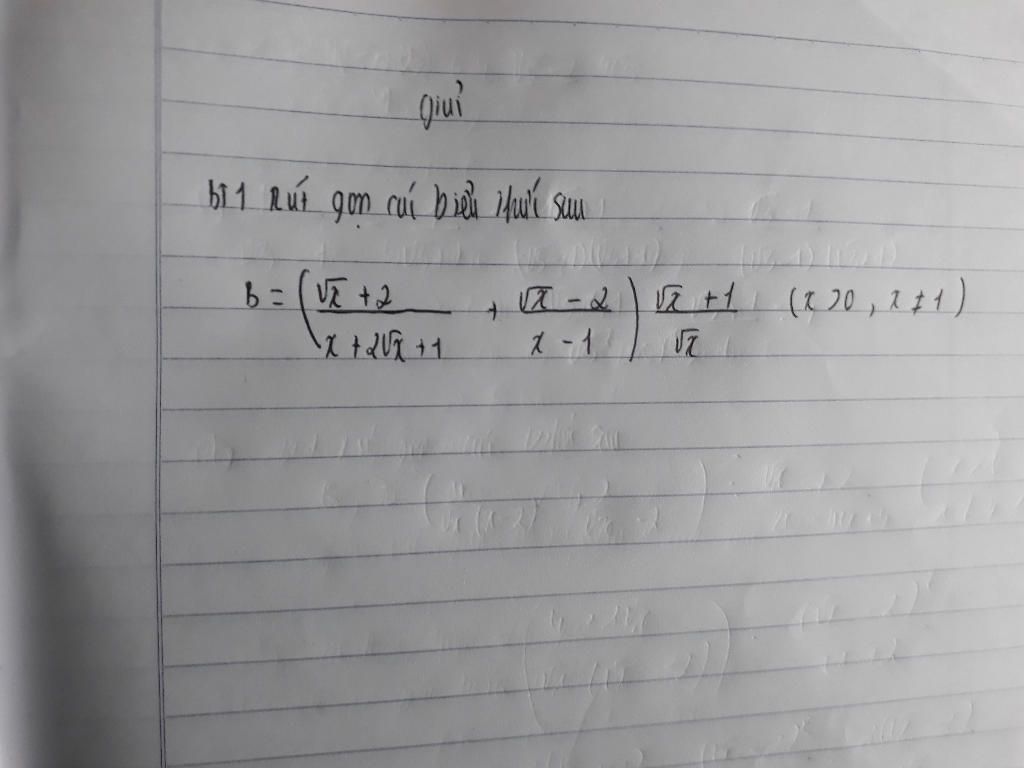 giải
bt1 Rút gọn cái biểu thức sau
B = ( (√x + 2)/(x + 2√x + 1) + (√x - 2)/(x - 1) ) (√x + 1)/√x (x > 0, x ≠ 1)